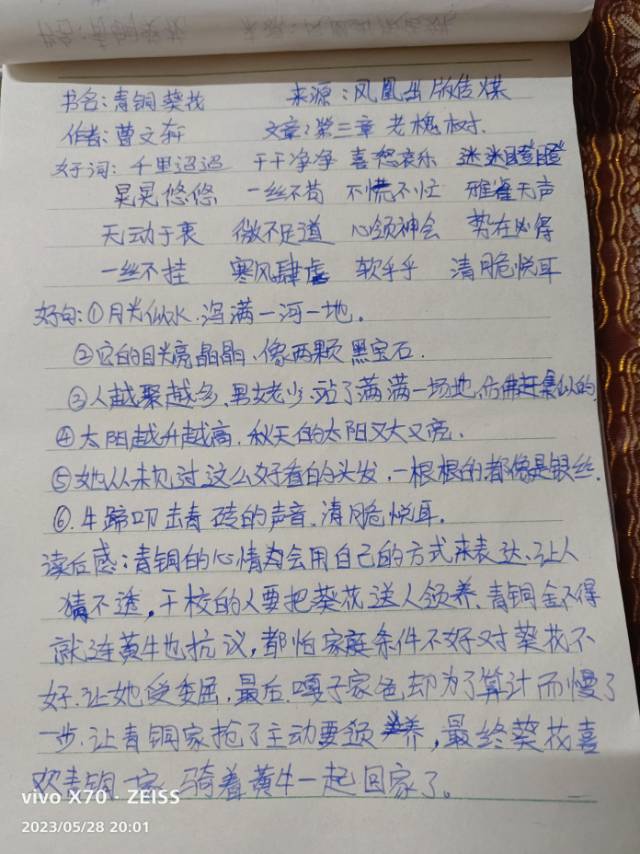 书名：青铜葵花 来源：凤凰出版传媒
作者：曹文轩 文章：第三章 老槐树.
好词：千里迢迢 干干净净 喜怒哀乐 迷迷瞪瞪
晃晃悠悠 一丝不苟 不慌不忙 雅雀无声
无动于衷 微不足道 心领神会 势在必得
一丝不挂 寒风肆虐 软乎乎 清脆悦耳
好句：①月光似水.泻满一河一地.
②它的目光亮晶晶.像两颗黑宝石.
③人越聚越多.男女老少.站了满满一场地.仿佛赶集似的
④太阳越升越高.秋天的太阳又大又亮.
⑤她从未见过这么好看的头发，一根根的都像是银丝.
⑥.牛蹄叩击青砖的声音.清脆悦耳.
读后感：青铜的心情均会用自己的方式来表达.让人
猜不透，干校的人要把葵花送人领养.青铜舍不得
就连黄牛也抗议，都怕家庭条件不好对葵花不
好.让她受委屈.最后.嘎子家爸却为了算计而慢了
一步.让青铜家抢了主动要领养，最终葵花喜
欢青铜一家.骑着黄牛一起回家了。
vivo X70 · ZEISS
2023/05/28 20:01